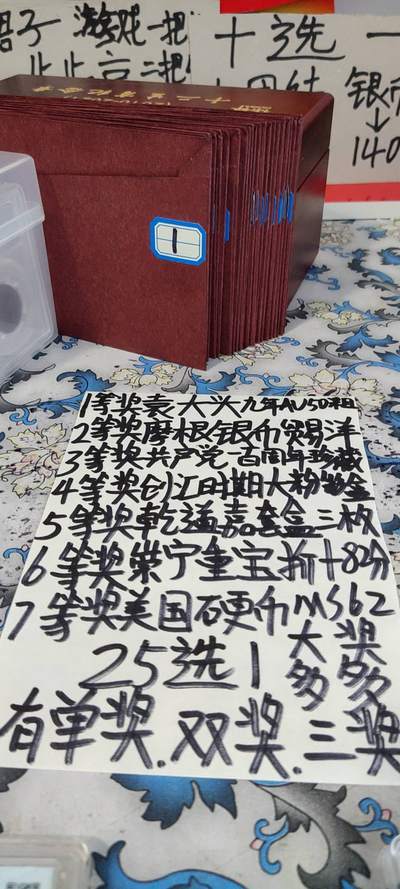 游戏一把
北京二把
十选一
银币
↓
140
1
1等奖袁大头九年AU50粗
2等奖摩根银币贸易洋
3等奖共产党一百周年珍藏
4等奖创汇时期大粉盒金
5等奖乾道嘉套盒三枚
6等奖崇宁重宝折十82分
7等奖美国硬币MS62
25选1
大奖
多多
有单奖.双奖.三奖